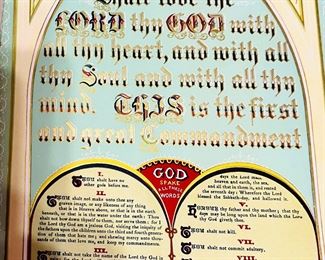 Shalt love the
LORD thy GOD with
all thy heart, and with all
thy Soul and with all thy
mind. THIS is the first
and great Commandment
GOD
SPAKE
ALL THESE
WORDS
I.
THOU shalt have no
other gods before me.
II.
THOU shalt not make unto thee any
graven image, or any likeness of any thing
that is in Heaven above, or that is in the earth
beneath, or that is in the water under the earth: Thou
shalt not bow down thyself to them, nor serve them: for I
the Lord thy God am a jealous God, visiting the iniquity of
the fathers upon the children unto the third and fourth genera-
tion of them that hate me; and shewing mercy unto thou-
sands of them that love me, and keep my commandments.
III.
THOU shalt not take the name of the Lord thy God in
days the Lord made
heaven and earth, the sea,
and all that in them is, and rested
the seventh day: Wherefore the Lord
blessed the Sabbath-day, and hallowed it.
V.
HONOUR thy father and thy mother; that thy
days may be long upon the land which the Lord
thy God giveth thee.
VI.
THOU shalt not kill.
VII.
THOU shalt not commit adultery.
VIII.